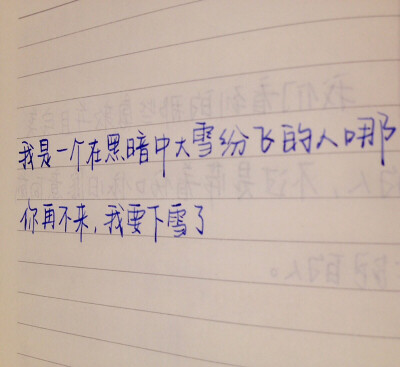 我是一个在黑暗中大雪纷飞的人哪
你再不来，我要下雪了